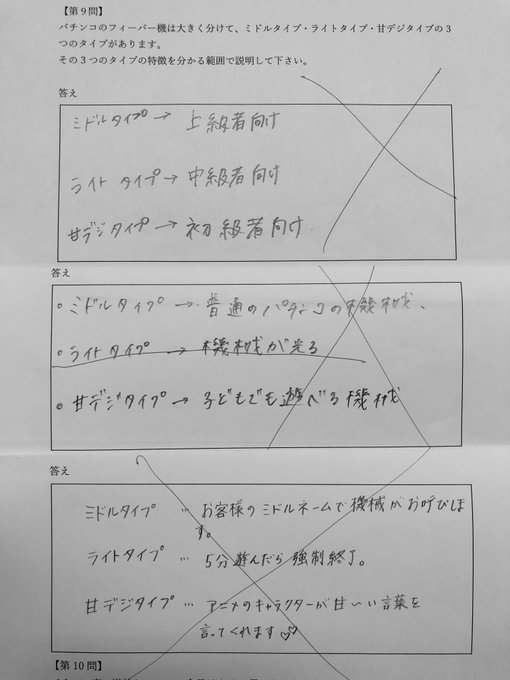 【第9問】
パチンコのフィーバー機は大きく分けて、ミドルタイプ・ライトタイプ・甘デジタイプの3
つのタイプがあります。
その3つのタイプの特徴を分かる範囲で説明して下さい。
答え
ミドルタイプ→ 上級者向け
ライトタイプ→ 中級者向け
甘デジタイプ→ 初級者向け.
答え
○ミドルタイプ→普通のパチンコの機械、
○ライトタイプ→機械が光る
○甘デジタイプ→子どもでも遊べる機械
答え
ミドルタイプ … お客様のミドルネームで機械がお呼びしま
す。
ライトタイプ … 5分遊んだら強制終了。
甘デジタイプ … アニメのキャラクターが甘~い言葉を
言ってくれます♡♡
【第10問】